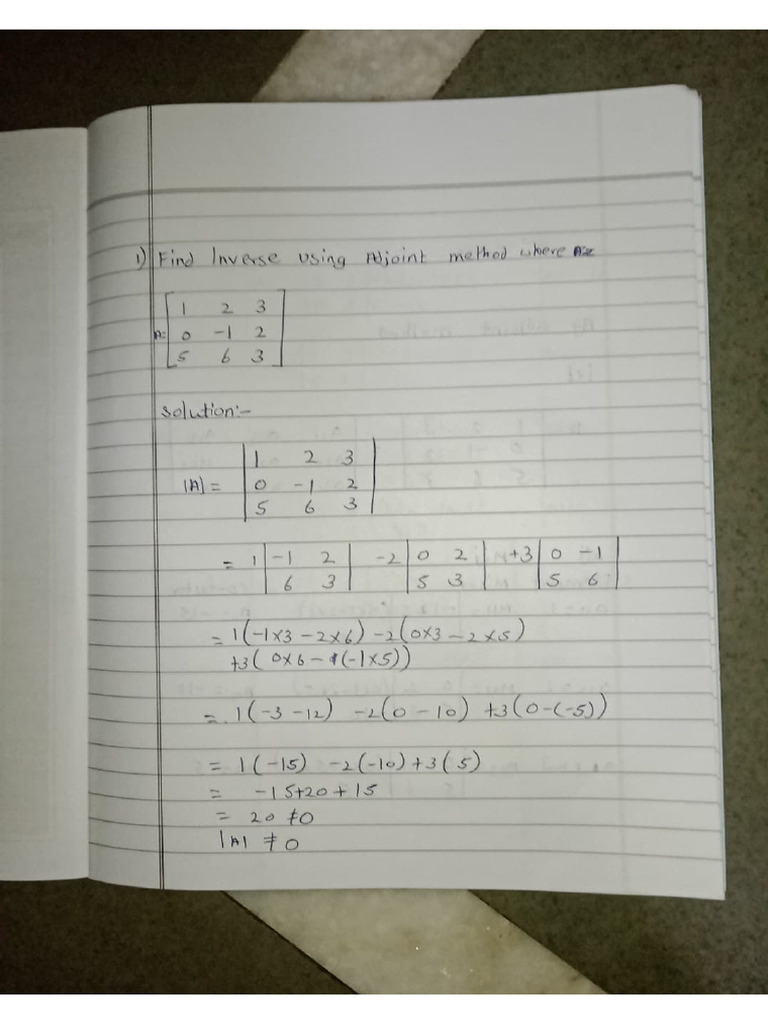 1) Find Inverse using Adjoint method where A=
A= [ 1 2 3
0 -1 2
5 6 3 ]
solution:-
|A| = | 1 2 3 |
| 0 -1 2 |
| 5 6 3 |
= 1 | -1 2 | -2 | 0 2 | +3 | 0 -1 |
| 6 3 | | 5 3 | | 5 6 |
= 1(-1×3 - 2×6) -2(0×3 - 2×5)
+3(0×6 - (-1×5))
= 1(-3 -12) -2(0 - 10) +3(0-(-5))
= 1(-15) -2(-10) +3(5)
= -15+20+15
= 20 ≠0
|A| ≠ 0